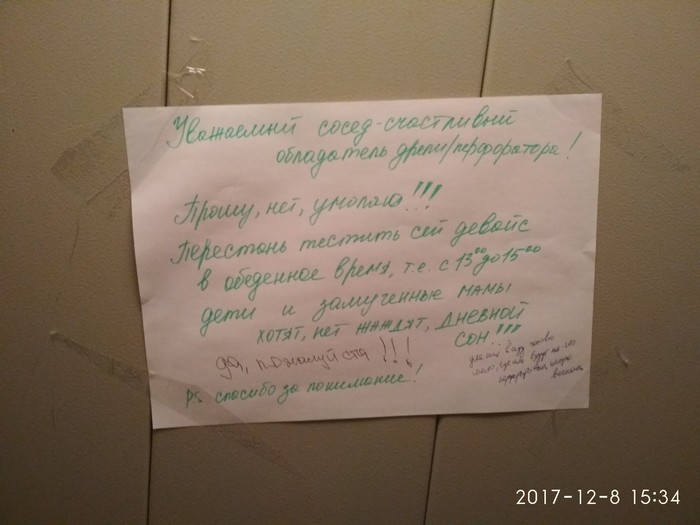 Уважаемый сосед-счастливый
обладатель дрели/перфоратора!
Прошу, нет, умоляю!!!
Перестань тестить сей девайс
в обеденное время, т.е. с 13⁰⁰ до 15⁰⁰
дети и замученные мамы
хотят, нет жаждят, дневной
сон!!!
да, пожалуйста!!!
PS спасибо за понимание!
2017-12-8 15:34